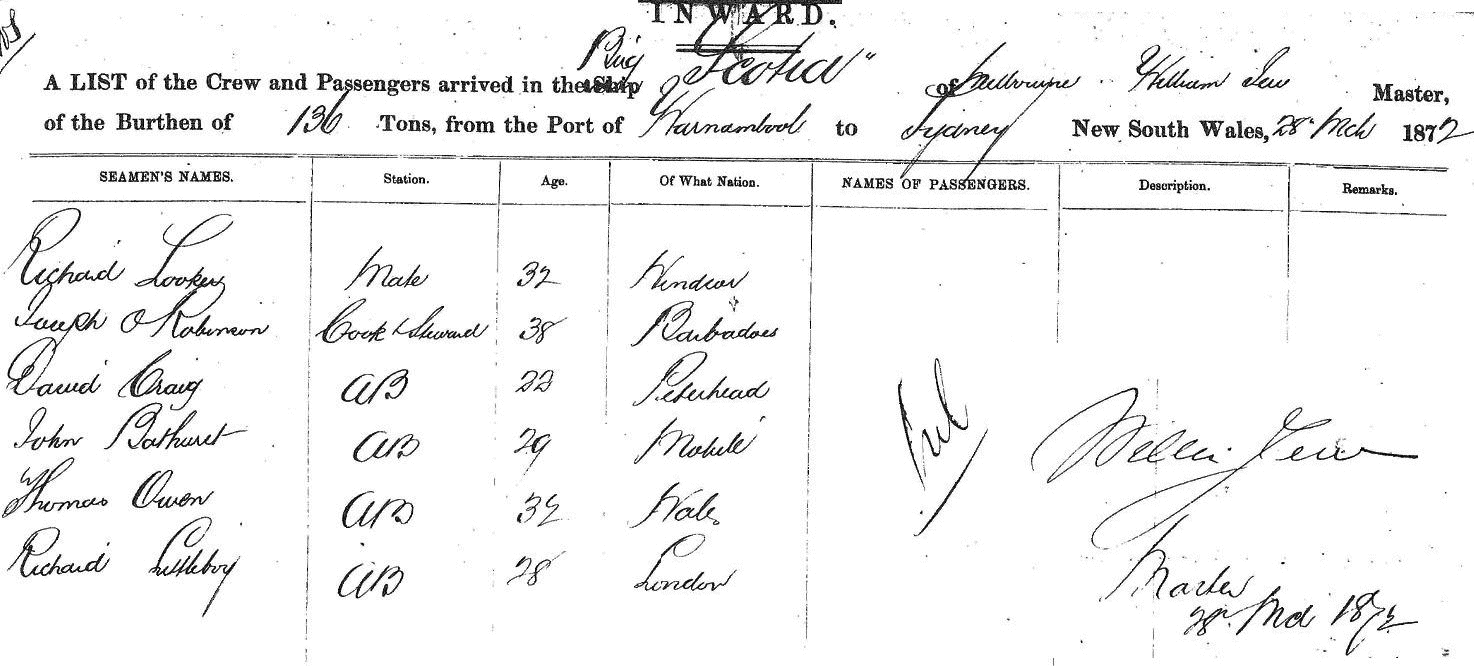 INWARD.
Brig "Scotia"
A LIST of the Crew and Passengers arrived in the Ship of Melbourne William Jew Master,
of the Burthen of 136 Tons, from the Port of Warnambool to Sydney New South Wales, 28 Mch 1872
SEAMEN'S NAMES. Station. Age. Of What Nation. NAMES OF PASSENGERS. Description. Remarks.
Richard Mate 32 Windsor
Joseph O Robinson Cook & Steward 38 Barbadoes
David Craig AB 22 Peterhead
John Bathurst AB 29 Mobile
Thomas Owen AB 32 Wales
Richard Littleboy AB 28 London
Nil
Willm Jew
Master
28 Mch 1872